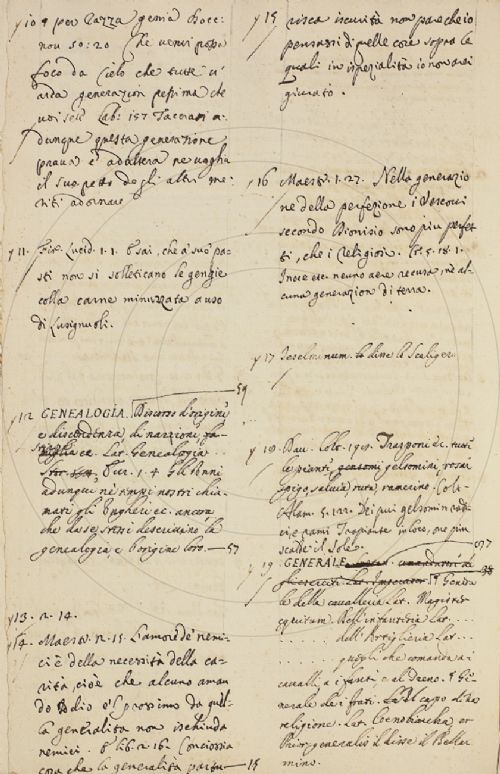 y 10 9 per Razza genia Bocc.
nov. 50: 20 Che venir possa
foco da Cielo che tutte v'
arda generazion pessima che
voi siete Lab: 157 Taccrasi a-
dunque questa generazione
prava e adultera ne voglia
il suo petto degli altrui me-
riti adornare
y 11. Fir. Lucid. 1. 1. E sai, che a suoi pa-
sti non si solleticano le gengie
colla carne minuzzata a uso
di Lusignuoli.
59
y 12 GENEALOGIA. Discorso d'origine
e discendenza di nazzioni, fa-
Lat. Genealogia
Stor. Eur. 1. 4 Gli Unni
adunque ne' tempi nostri chia-
mati gli Ungheri ec. ancora
che da se stessi descrivino la
genealogia e l'origine loro — 57
y 13. n. 14.
14. Maestr. 2. 15. L'amore de' nemi-
ci è della necessità della ca-
rità, cioè che alcuno aman-
do Iddio e 'l prossimo da quel-
la generalità non ischiuda
nemici. E lib. 2. 16. Conciossia
cosa che la generalità partu — 15
y 15 risca iscurità non pare che io
pensassi di quelle cose sopra le
quali in ispezialità io non avrei
giurato.
y 16 Maestr. 1. 27. Nella generazio
ne della perfezione i Vescovi
secondo Dionisio sono più perfet
ti, che i Religiosi. Cr. 5. 18. 1.
nuno aere recusa, ne al-
cuna generazion di terra.
y 17 Teselinum. lo dice lo Scaligero
y 18. Dav. Colt. 191. Trapponi ec. tutte
le piante, gelsomini, rosai
spigo, salvia, ruta, ramerino. Colt.
Alam. 5. 122. Dei più gelsomin radi-
ci e rami Trapiante in loco, ove più
scalde il Sole.
y 19. GENERALE
gli eserciti Lat. Imperator. ¶ Genera
le della cavalleria Lat. Magister
equitum. Dell'infanteria Lat. ....
.... dell'Artiglieria Lat ....
........ quegli che comanda ai
cavalli, a i fanti e al treno. ¶ Ge-
nerale de i frati. Il capo di una
religione. Lat. Coenobiarcha, or
Prior generalis il disse il Bellar
mino.